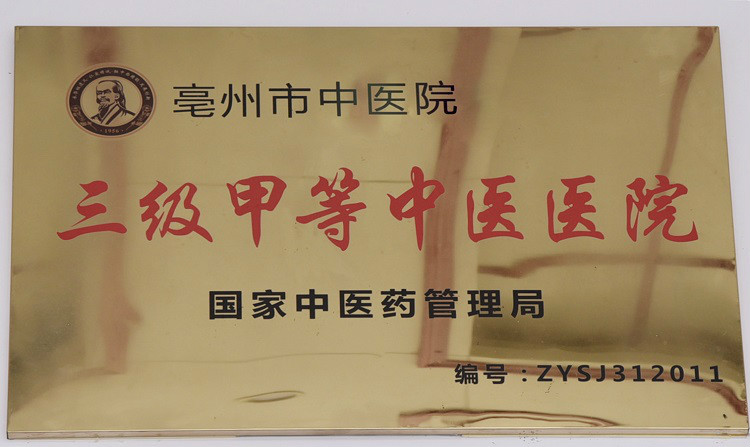 亳州市中医院
三级甲等中医医院
国家中医药管理局
编号：ZYSJ312011